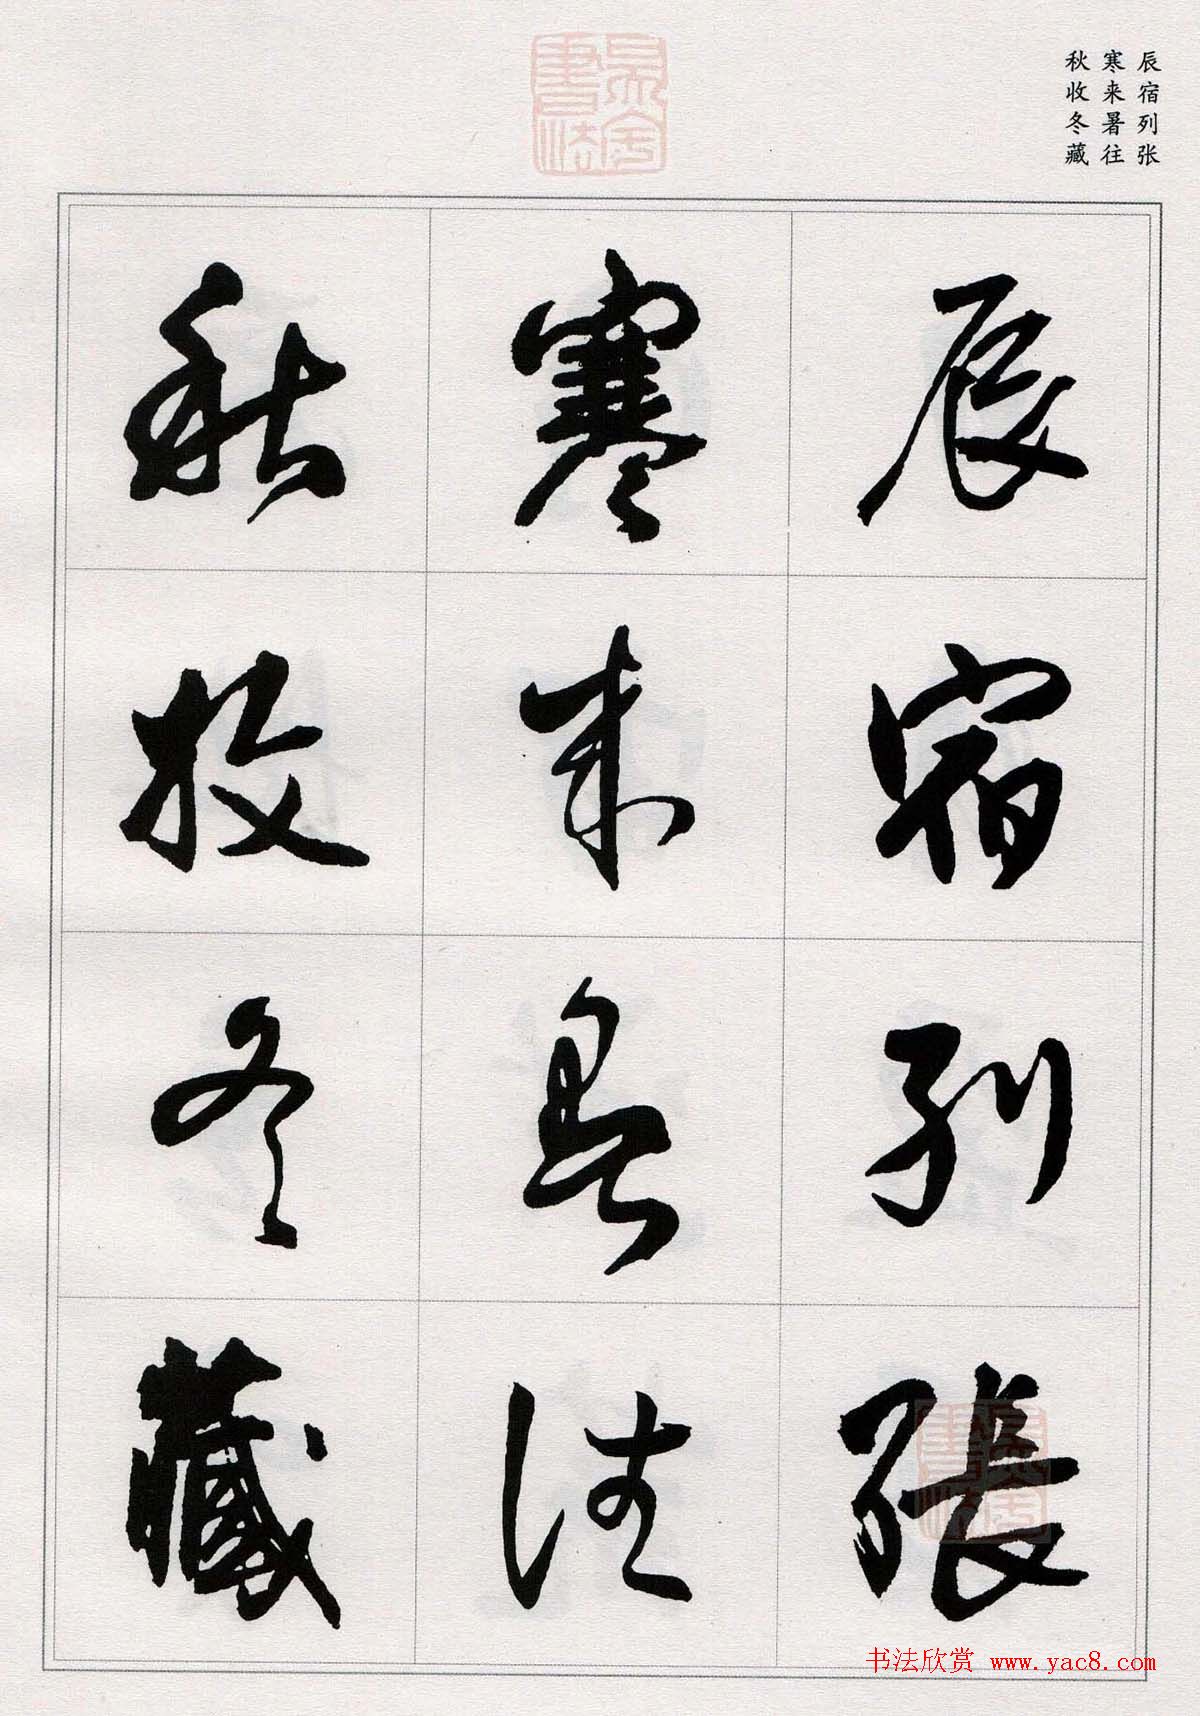 辰宿列张
寒来暑往
秋收冬藏
辰宿列張
寒来暑往
秋收冬藏
书法欣赏 www.yac8.com